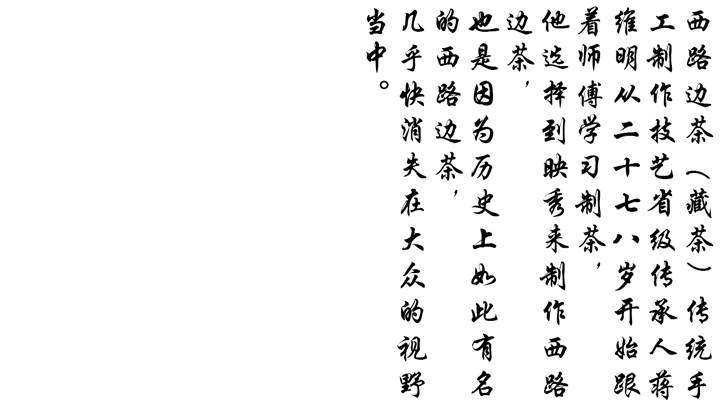 西路边茶（藏茶）传统手
工制作技艺省级传承人蒋
维明从二十七八岁开始跟
着师傅学习制茶，
他选择到映秀来制作西路
边茶，
也是因为历史上如此有名
的西路边茶，
几乎快消失在大众的视野
当中。